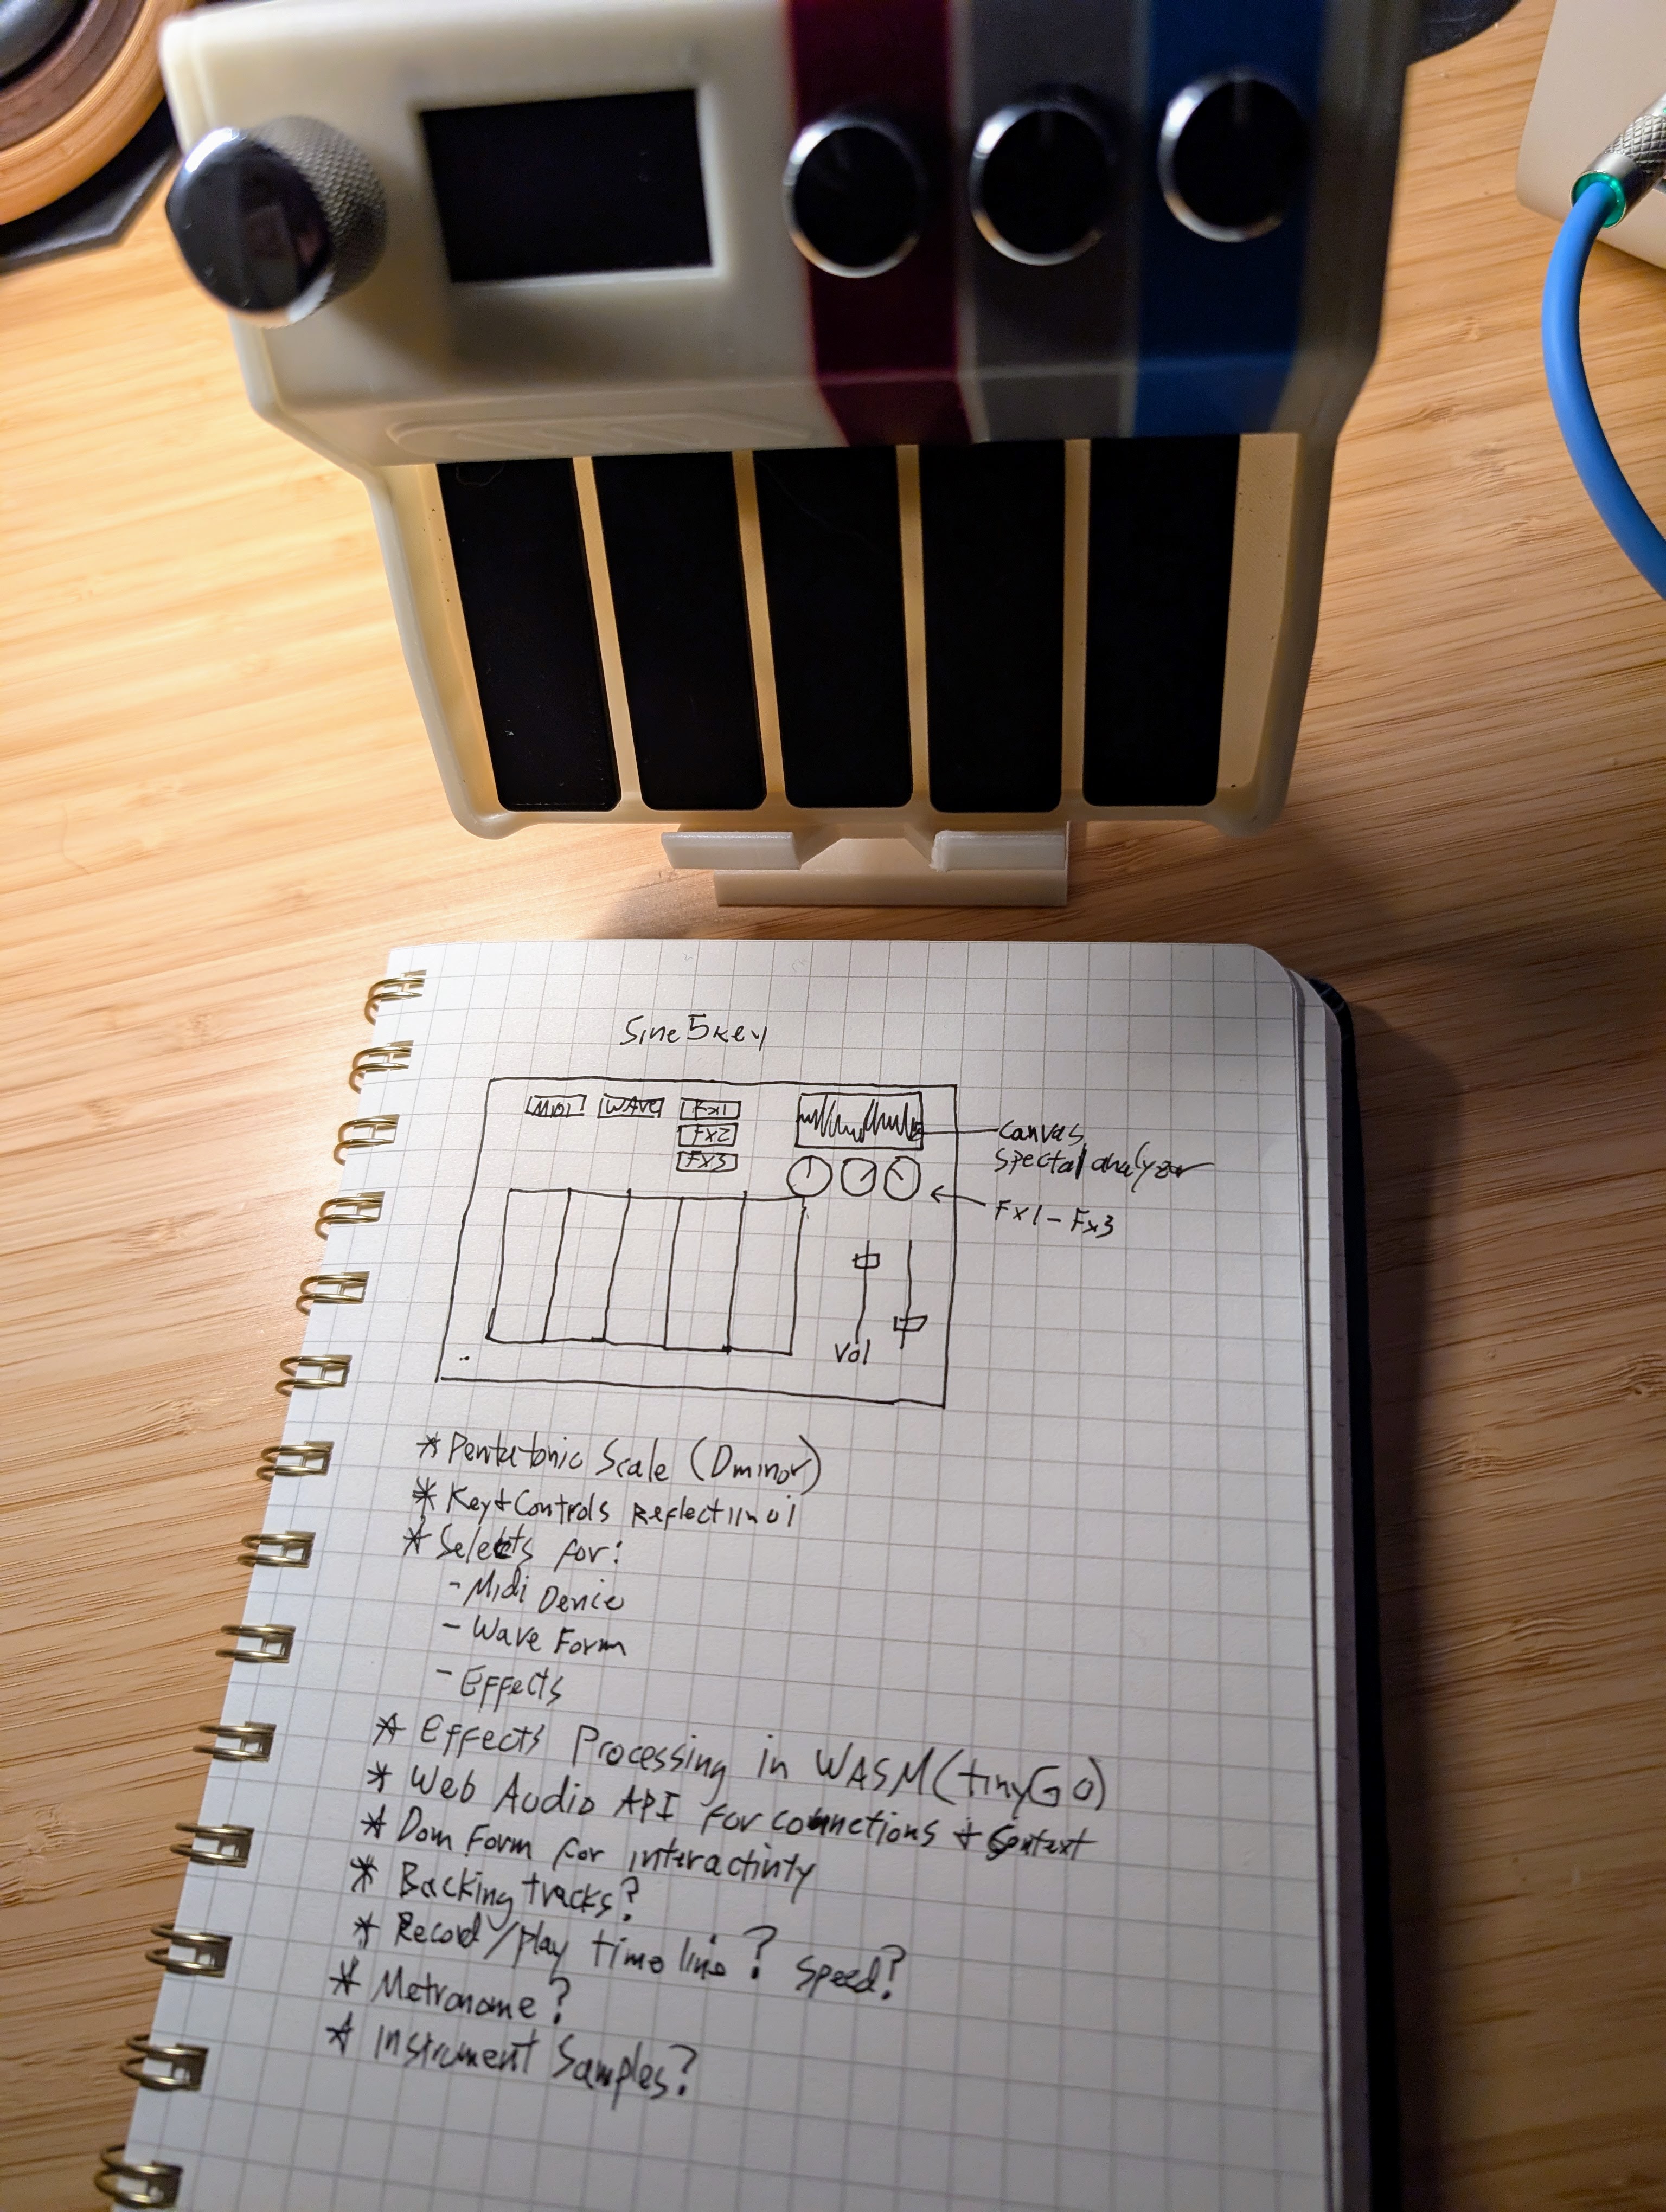 Sine5key
MIDI WAVE Fx1
Fx2
Fx3
canvas
spectal analyzer
Fx1-Fx3
Vol
* Pentatonic Scale (Dminor)
* Key+Controls Reflect in ui
* Selects for:
- Midi Device
- Wave Form
- Effects
* Effects Processing in WASM (tinyGo)
* Web Audio API for connections + Context
* Dom Form for interactivity
* Backing tracks?
* Record/play timeline? Speed?
* Metronome?
* Instrument Samples?